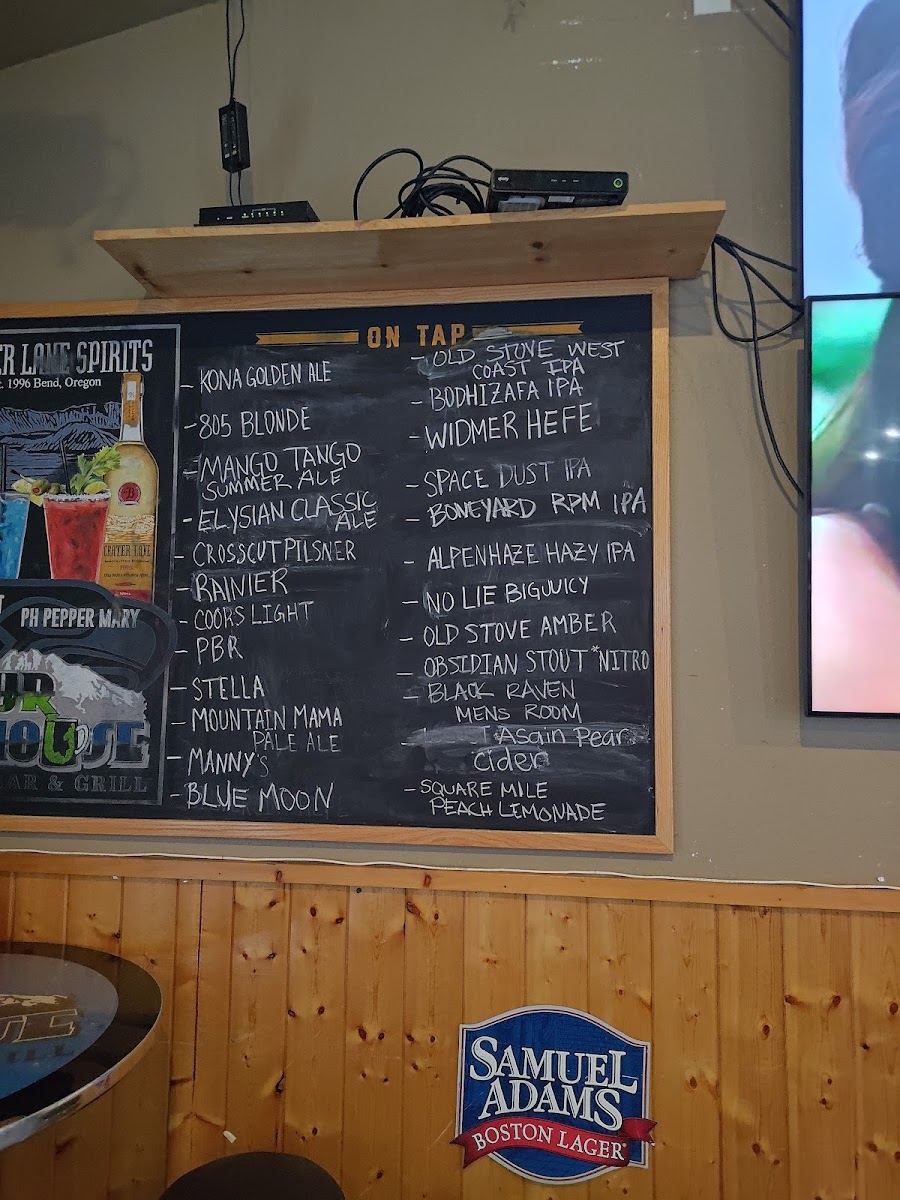 ON TAP
ER LAKE SPIRITS
t. 1996 Bend, Oregon
CRATER LAKE
PH PEPPER MARY
UR
HOUSE
BAR & GRILL
- KONA GOLDEN ALE
- 805 BLONDE
- MANGO TANGO
SUMMER ALE
- ELYSIAN CLASSIC
ALE
- CROSSCUT PILSNER
- RAINIER
- COORS LIGHT
- PBR
- STELLA
- MOUNTAIN MAMA
PALE ALE
- MANNY'S
- BLUE MOON
- OLD STOVE WEST
COAST IPA
- BODHIZAFA IPA
- WIDMER HEFE
- SPACE DUST IPA
- BONEYARD RPM IPA
- ALPENHAZE HAZY IPA
- NO LIE BIGJUICY
- OLD STOVE AMBER
- OBSIDIAN STOUT *NITRO
- BLACK RAVEN
MENS ROOM
- Asain Pear
Cider
- SQUARE MILE
PEACH LEMONADE
SAMUEL
ADAMS
BOSTON LAGER